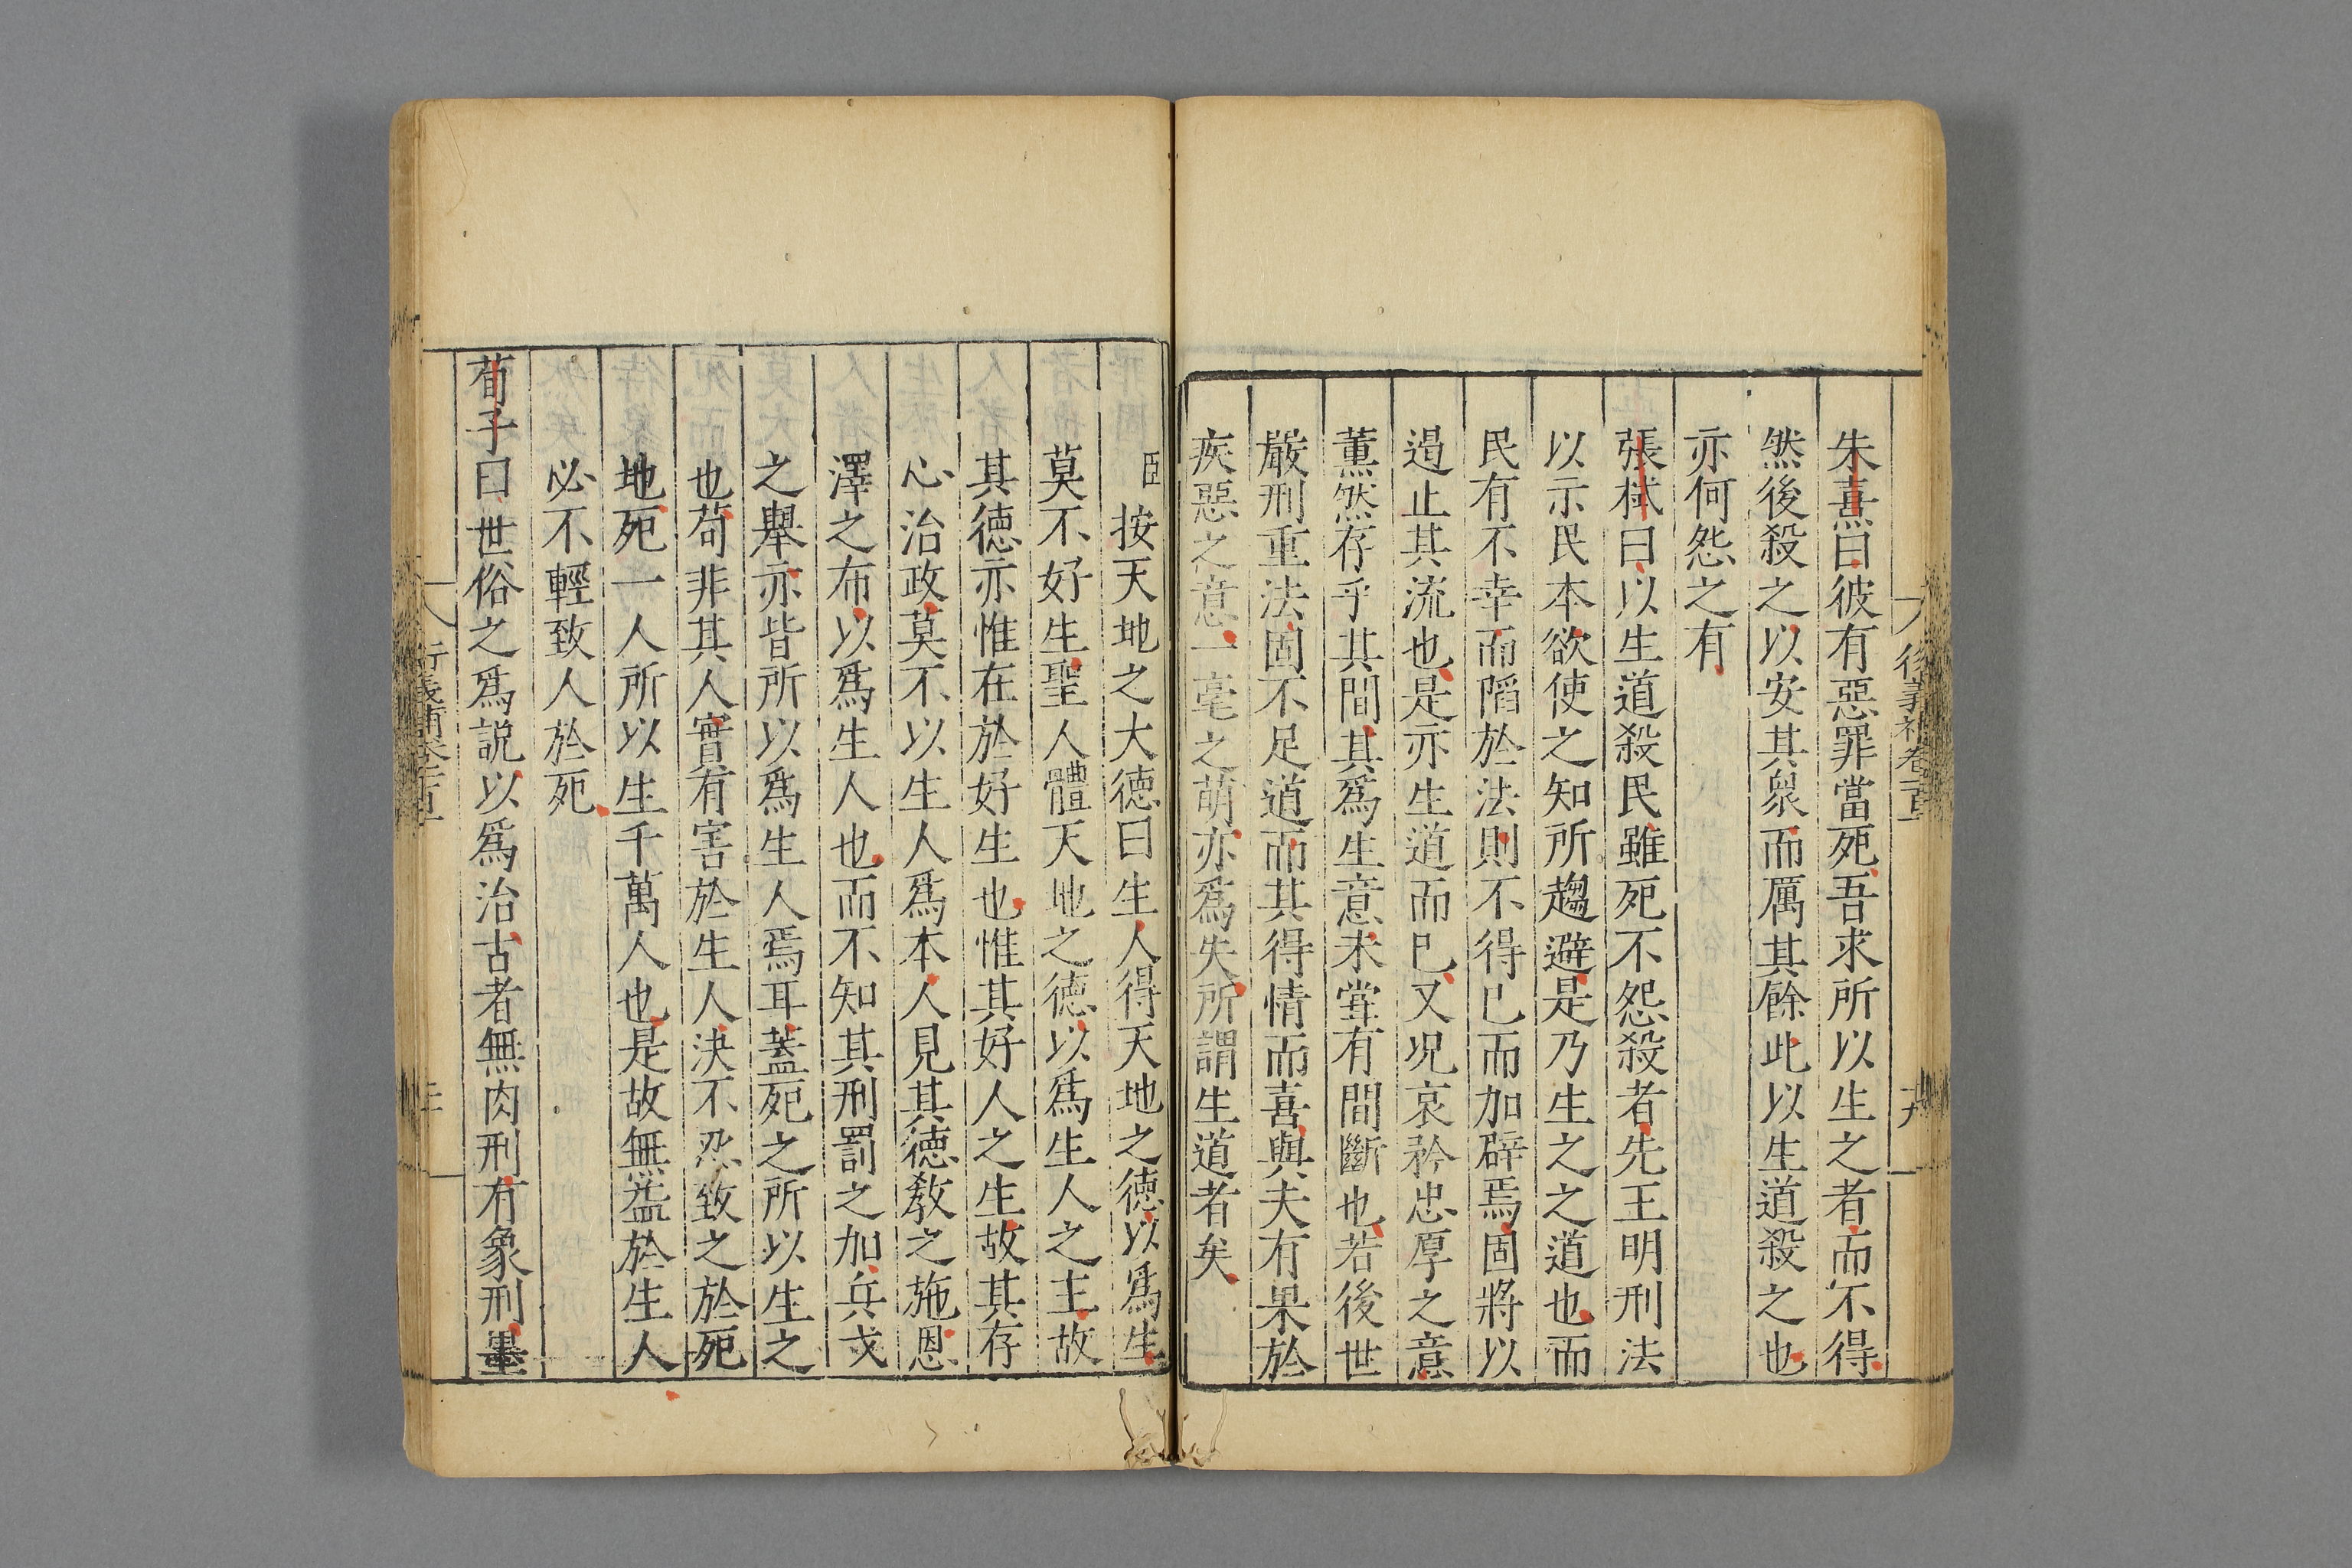 朱熹曰彼有惡罪當死吾求所以生之者而不得
然後殺之以安其衆而厲其餘此以生道殺之也
亦何怨之有
張栻曰以生道殺民雖死不怨殺者先王明刑法
以示民本欲使之知所趨避是乃生之之道也而
民有不幸而䧟於法則不得已而加辟焉固將以
遏止其流也是亦生道而已又况哀矜忠厚之意
薰然存乎其間其爲生意未甞有間斷也若後世
嚴刑重法固不足道而其得情而喜與夫有果於
疾惡之意一毫之萌亦爲失所謂生道者矣
臣按天地之大德曰生人得天地之德以爲生
莫不好生聖人體天地之德以爲生人之主故
其德亦惟在於好生也惟其好人之生故其存
心治政莫不以生人爲本人見其德教之施恩
澤之布以爲生人也而不知其刑罰之加兵戈
之舉亦皆所以爲生人焉耳蓋死之所以生之
也苟非其人實有害於生人決不忍致之於死
地死一人所以生千萬人也是故無益於生人
必不輕致人於死
荀子曰世俗之爲說以爲治古者無肉刑有象刑墨